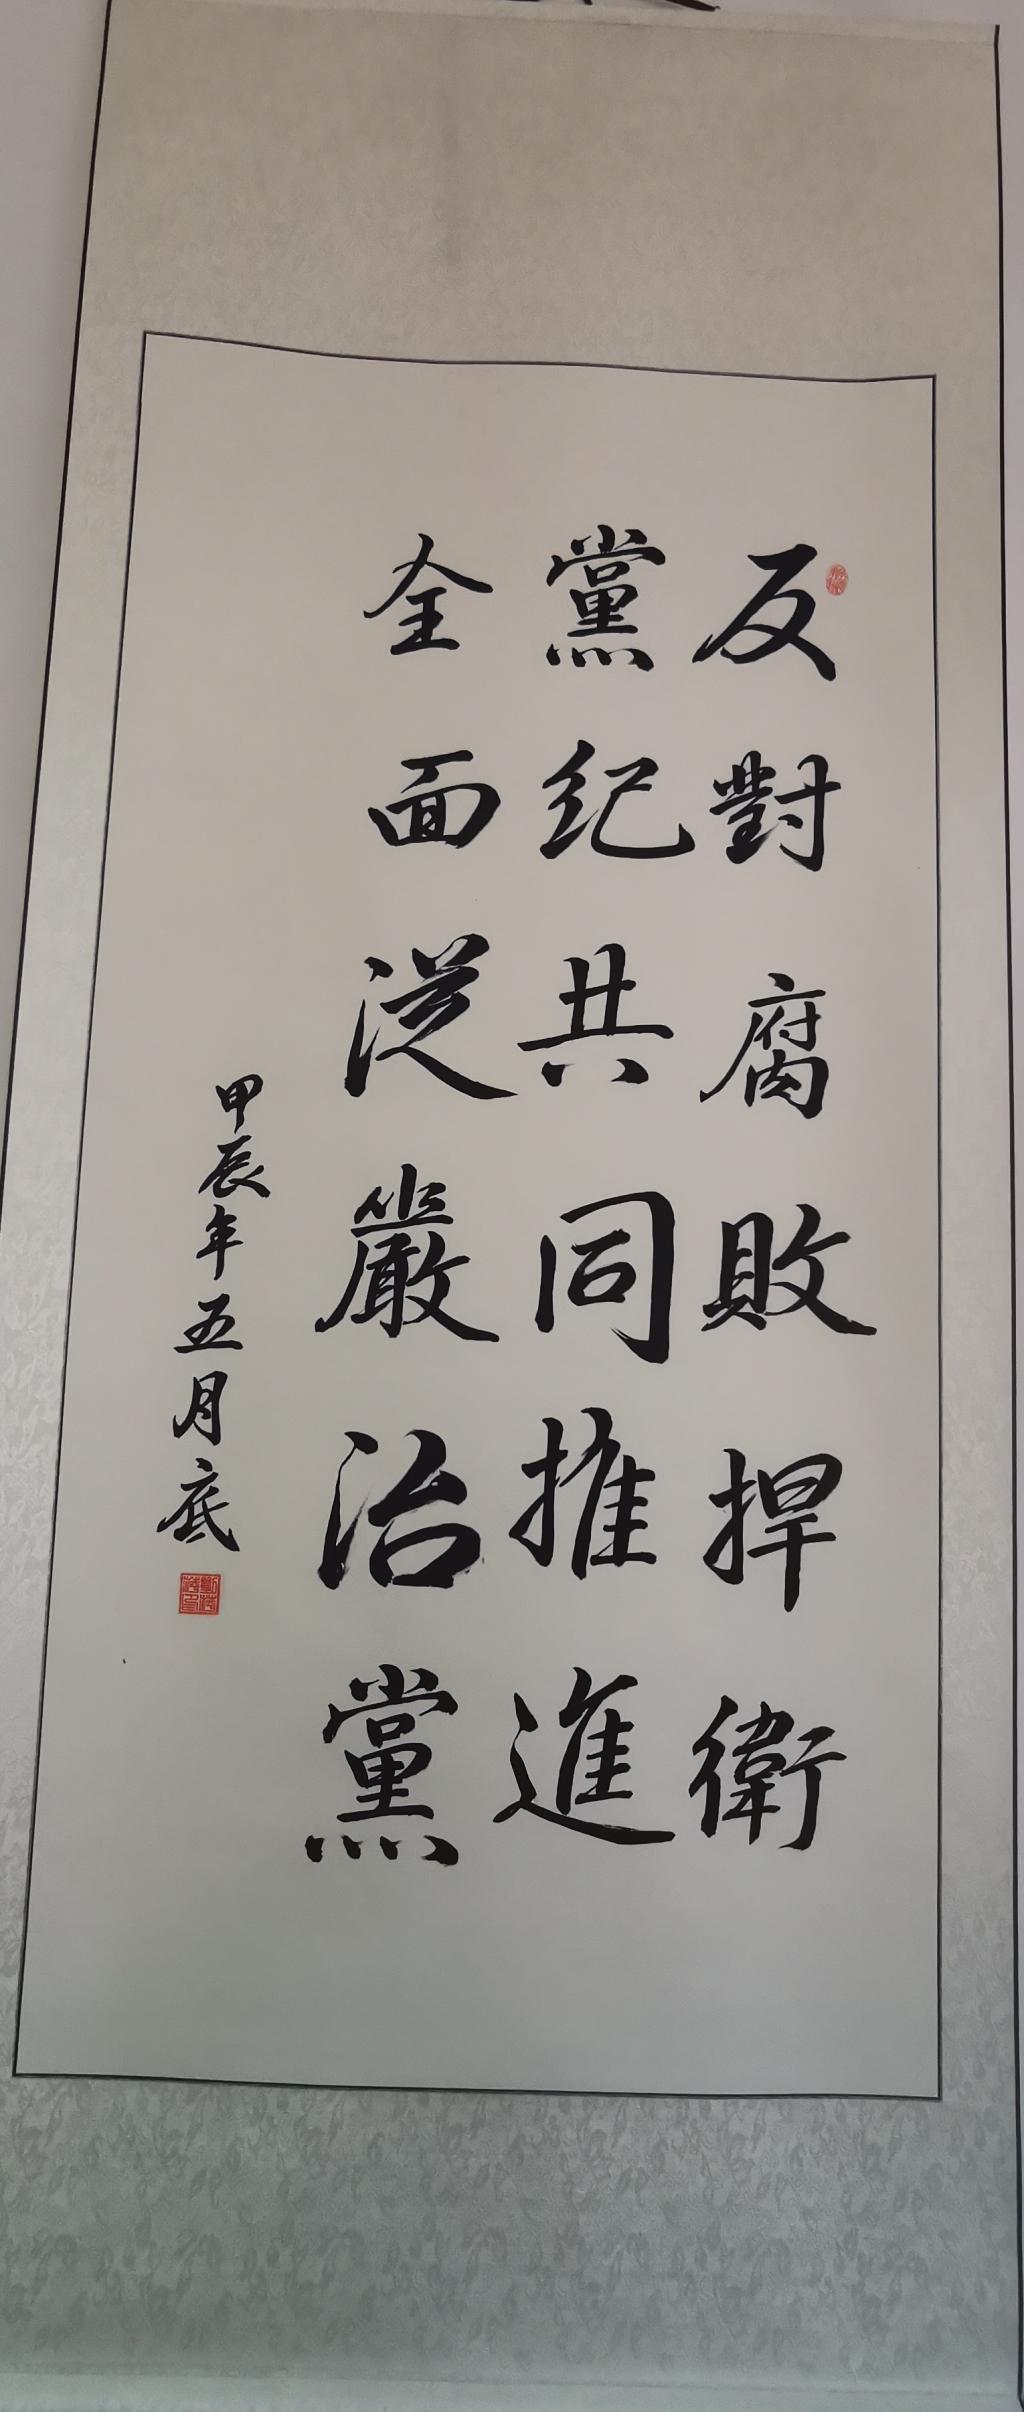 反對腐敗捍衛
黨紀共同推進
全面從嚴治黨
甲辰年五月底